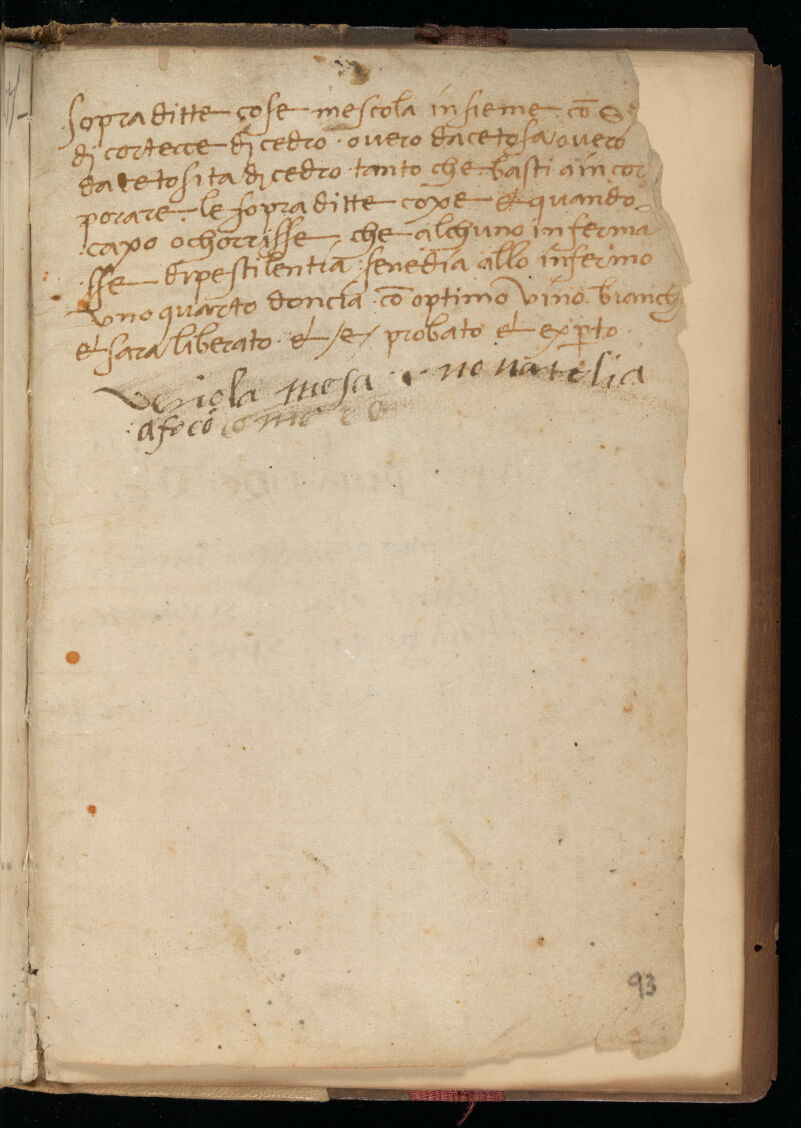 sopraditte cose mescola insieme cō
dj cortecce dj cedro · ouero dacetosa ouero
dacetosita dj cedro · tanto che basti a incor
porare · le sopraditte coxe et quando
caxo ochorrisse · che alchuno inferma
sse di pestilentia · senedia allo infermo
vno quarto doncia · cō optimo vino bianch
et sara liberato · et /e/ probato et experto ·
mesa
afoco
93